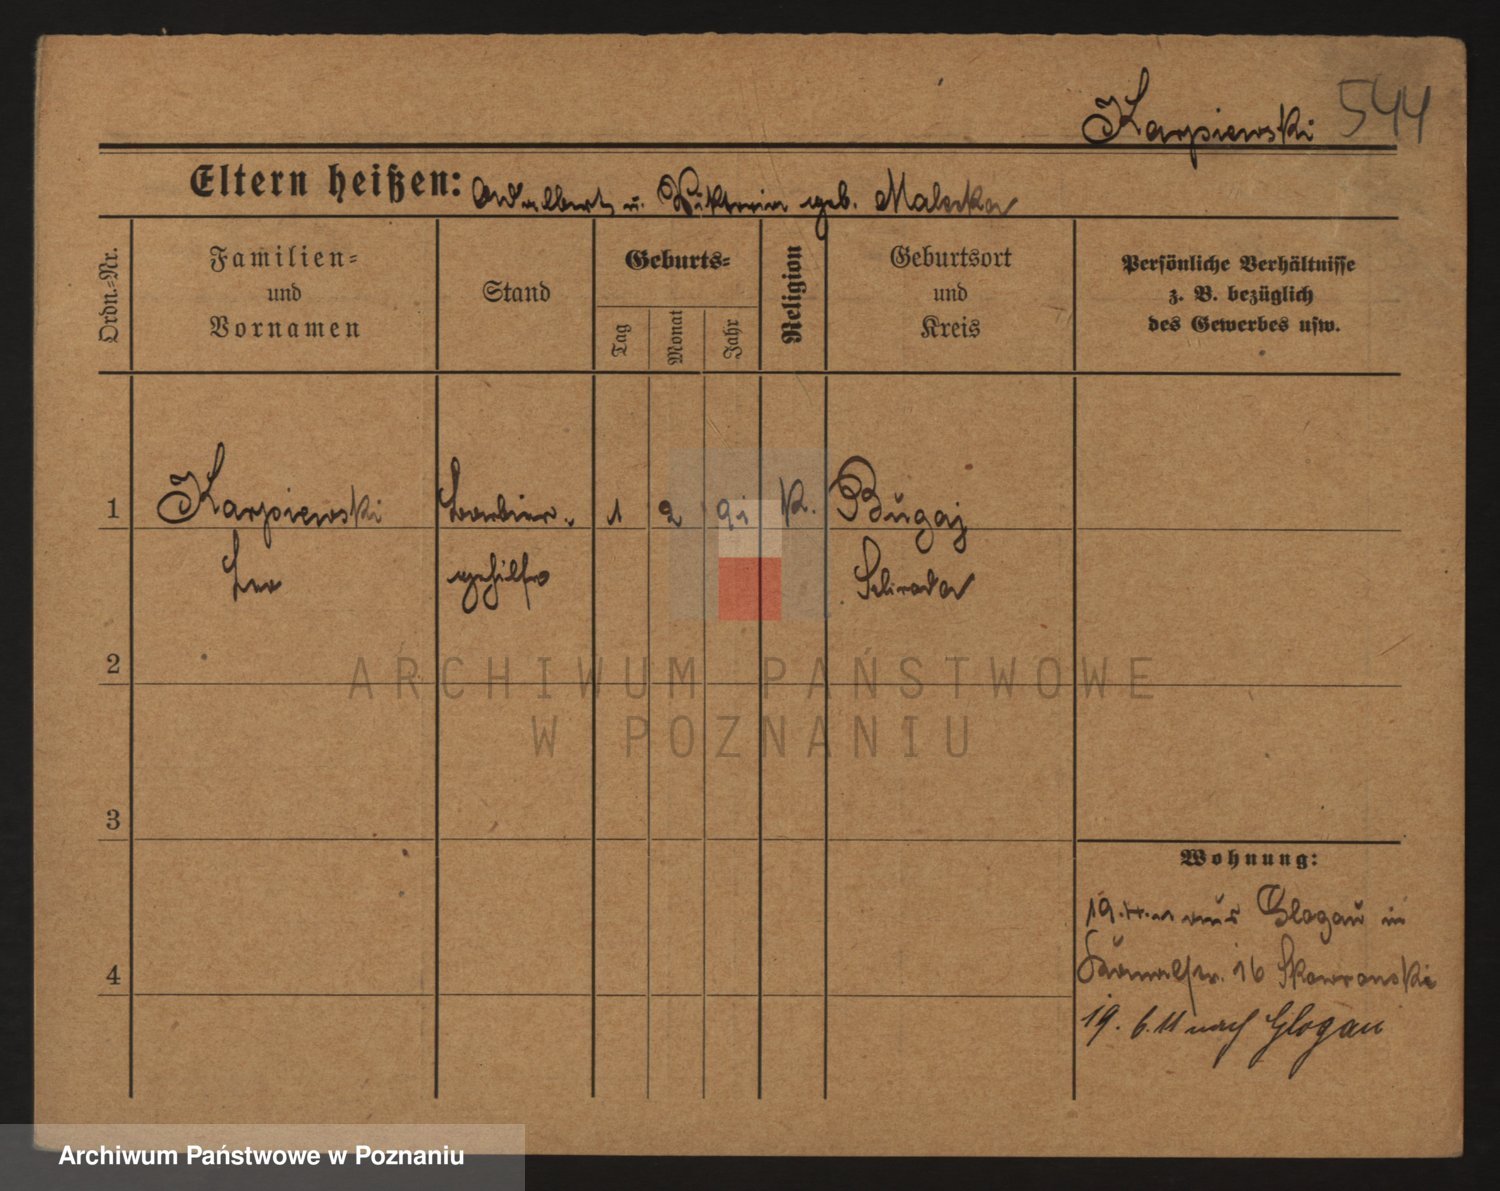 Karpiewski 544
Eltern heißen: Adalbert u. Viktoria geb. Malecka
Ordn.-Nr.
Familien-
und
Vornamen
Stand
Geburts-
Tag
Monat
Jahr
Religion
Geburtsort
und
Kreis
Persönliche Verhältnisse
z. B. bezüglich
des Gewerbes usw.
1 Karpiewski Barbier- 1 2 91 K. Bugaj
Leo gehilfe Schroda
2
ARCHIWUM PAŃSTWOWE
W POZNANIU
3
Wohnung:
19. aus Glogau in
16 Skowronski
4
19. 6. 11 nach Glogau
Archiwum Państwowe w Poznaniu